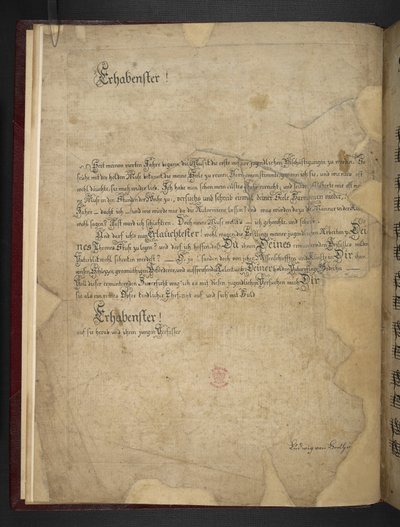 Erhabenster!
Seit meinem vierten Jahre begann die Musik die erste meiner jugendlichen Beschäftigungen zu werden. So
frühe mit der holden Muse bekannt, die meine Seele zu reinen Harmonieen stimmte, gewann ich sie, und wie mir's oft
wohl däuchte, sie mich wieder lieb. Ich habe nun schon mein eilftes Jahr erreicht; und seitdem flüsterte mir oft meine
Muse in den Stunden der Weihe zu: versuch's und schreib einmal deiner Seele Harmonieen nieder!
Jahre — dacht' ich — und wie würde mir da die Autormiene lassen? und was würden dazu die Männer in der Kunst
wohl sagen? Fast ward ich schüchtern. Doch meine Muse wollt's — ich gehorchte, und schrieb.
Und darf ich's nun Erlauchtester! wohl wagen, die Erstlinge meiner jugendlichen Arbeiten zu Dei-
nes Thrones Stufe zu legen? und darf ich hoffen, daß Du ihnen Deines ermunternden Beifalles milden
Vaterblick wohl schenken werdest? — O, ja! fanden doch von jeher Wissenschaften und Künste in Dir ihren
weisen Schützer, großmüthigen Beförderer, und aufsprießendes Talent unter Deiner holden Vaterpflege Gedeihn.
Voll dieser ermunternden Zuversicht wag' ich es mit diesen jugendlichen Versuchen mich Dir
sie als ein reines Opfer kindlicher Ehrfurcht auf und sieh mit Huld
Erhabenster!
auf sie herab und ihren jungen Verfasser
Ludwig van